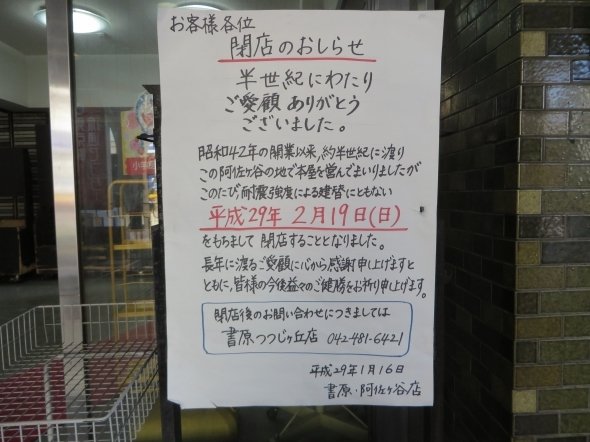 お客様各位
閉店のおしらせ
半世紀にわたり
ご愛顧ありがとう
ございました。
昭和42年の開業以来、約半世紀に渡り
この阿佐ヶ谷の地で本屋を営んでまいりましたが
このたび、耐震強度による建替にともない
平成29年 2月19日(日)
をもちまして閉店することとなりました。
長年に渡るご愛顧に心から感謝申し上げますと
ともに、皆様の今後益々のご健勝をお祈り申し上げます。
閉店後のお問い合わせにつきましては
書原つつじヶ丘店 042-481-6421
平成29年1月16日
書原・阿佐ヶ谷店